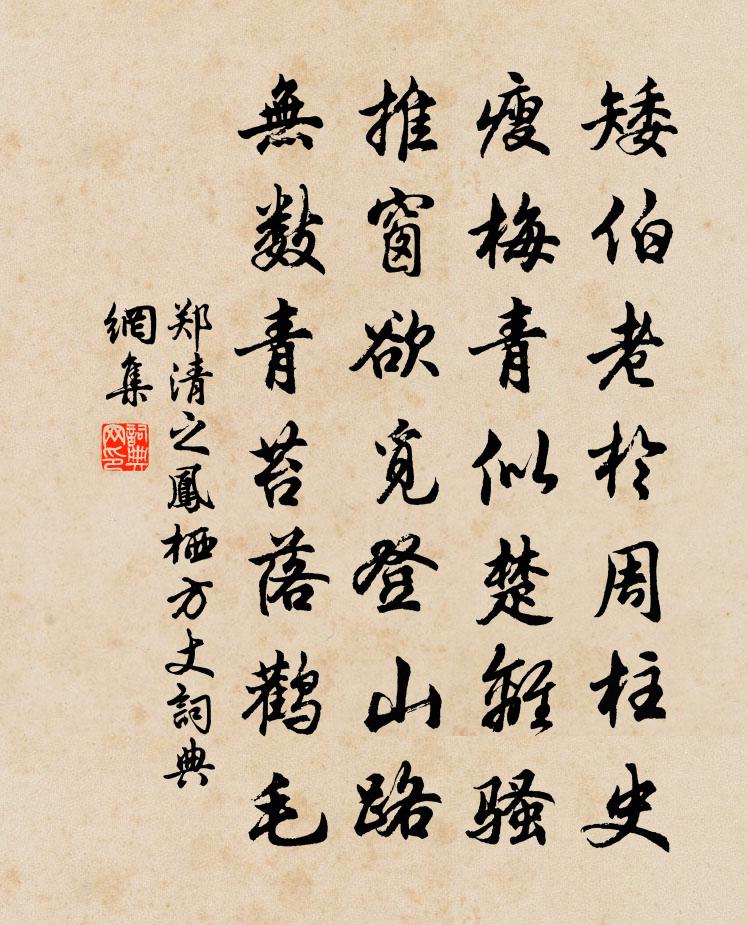 矮伯老於周柱史
瘦梅青似楚離騷
推窗欲覓登山路
無數青苔落鶴毛
郑清之鳳栖方丈詞典
網集
詞典
网印